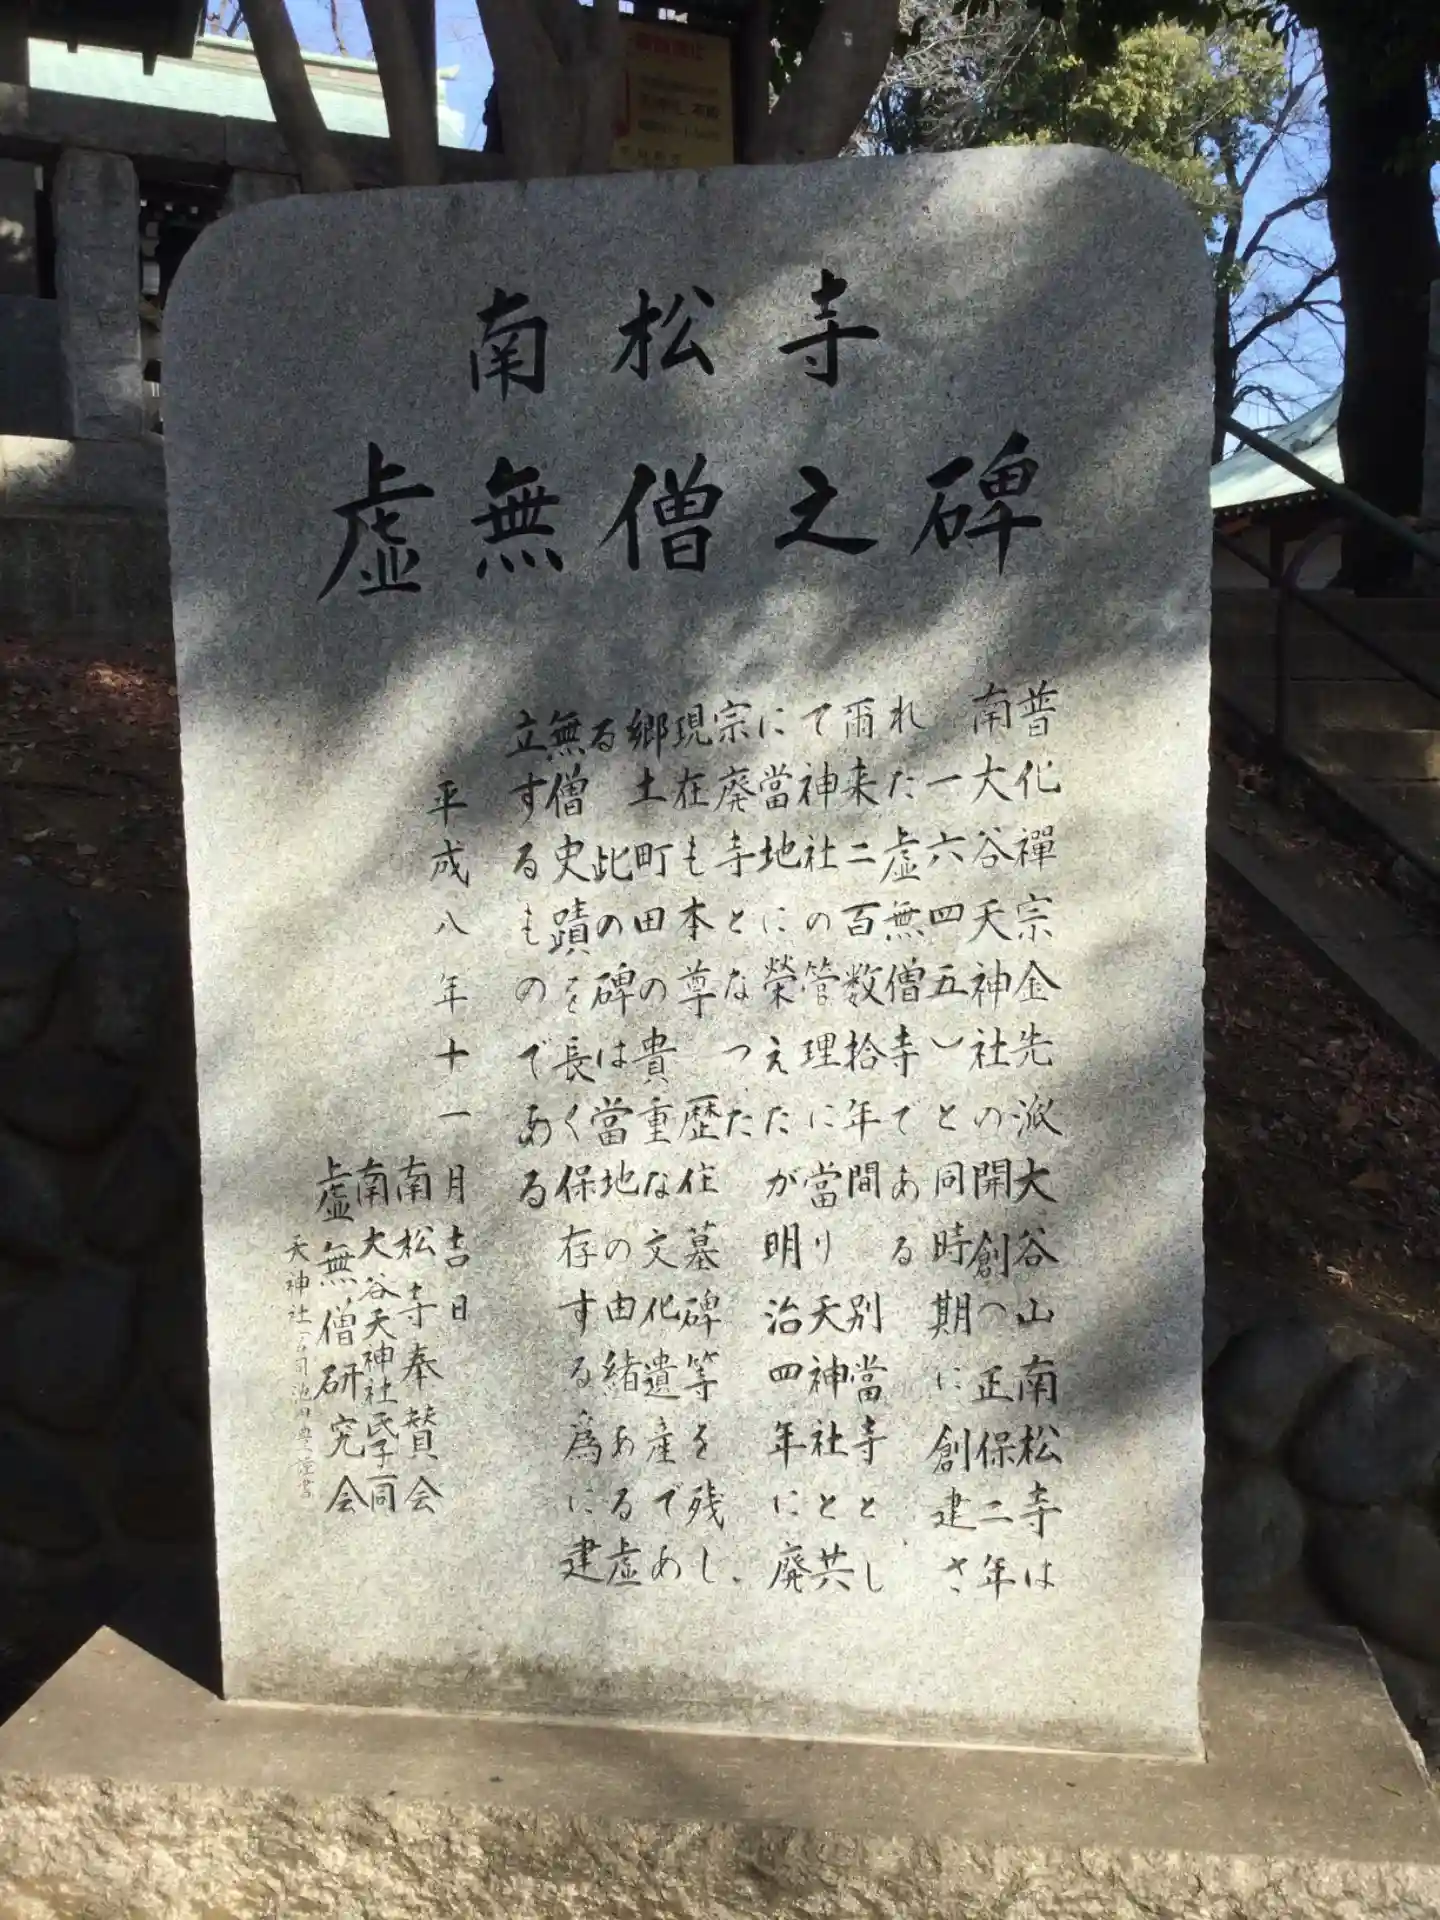 南松寺
虚無僧之碑
普化禪宗金先派大谷山南松寺は
南大谷天神社の開創(正保二年
一六四五)と同時期に創建さ
れた虚無僧寺である
爾来二百数拾年間 別當寺とし
て神社の管理に當り天神社と共
に當地に榮えたが明治四年に廃
宗廃寺となつた
現在も本尊 歴住墓碑等を残し、
郷土町田の貴重な文化遺産であ
る 此の碑は當地の由緒ある虚
無僧史蹟を長く保存する爲に建
立するものである
平成八年十一月吉日
南松寺奉賛会
南大谷天神社氏子一同
虚無僧研究会
天神社宮司池田